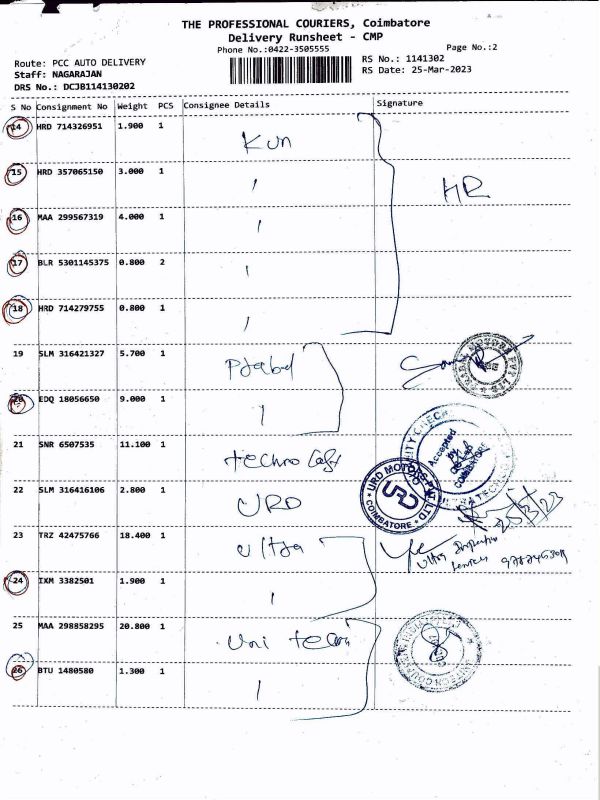 THE PROFESSIONAL COURIERS, Coimbatore
Delivery Runsheet - CMP
Phone No.:0422-3505555
Page No.:2
Route: PCC AUTO DELIVERY
RS No.: 1141302
Staff: NAGARAJAN
RS Date: 25-Mar-2023
DRS No.: DCJB114130202
S No Consignment No Weight PCS Consignee Details Signature
14 HRD 714326951 1.900 1 Kun
15 HRD 357065150 3.000 1 HR
16 MAA 299567319 4.000 1
17 BLR 5301145375 0.800 2
18 HRD 714279755 0.800 1
19 SLM 316421327 5.700 1
20 EDQ 18056650 9.000 1
21 SNR 6507535 11.100 1 techno
Accepted
COIMBATORE
22 SLM 316416106 2.800 1 URD
URD MOTORS PVT LTD
URD
COIMBATORE
23 TRZ 42475766 18.400 1 Ultra
Ultra
24 IXM 3382501 1.900 1
25 MAA 298858295 20.800 1 Uni tech
26 BTU 1480580 1.300 1